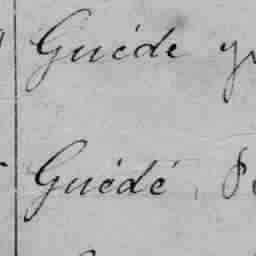 Guéde
Guédé